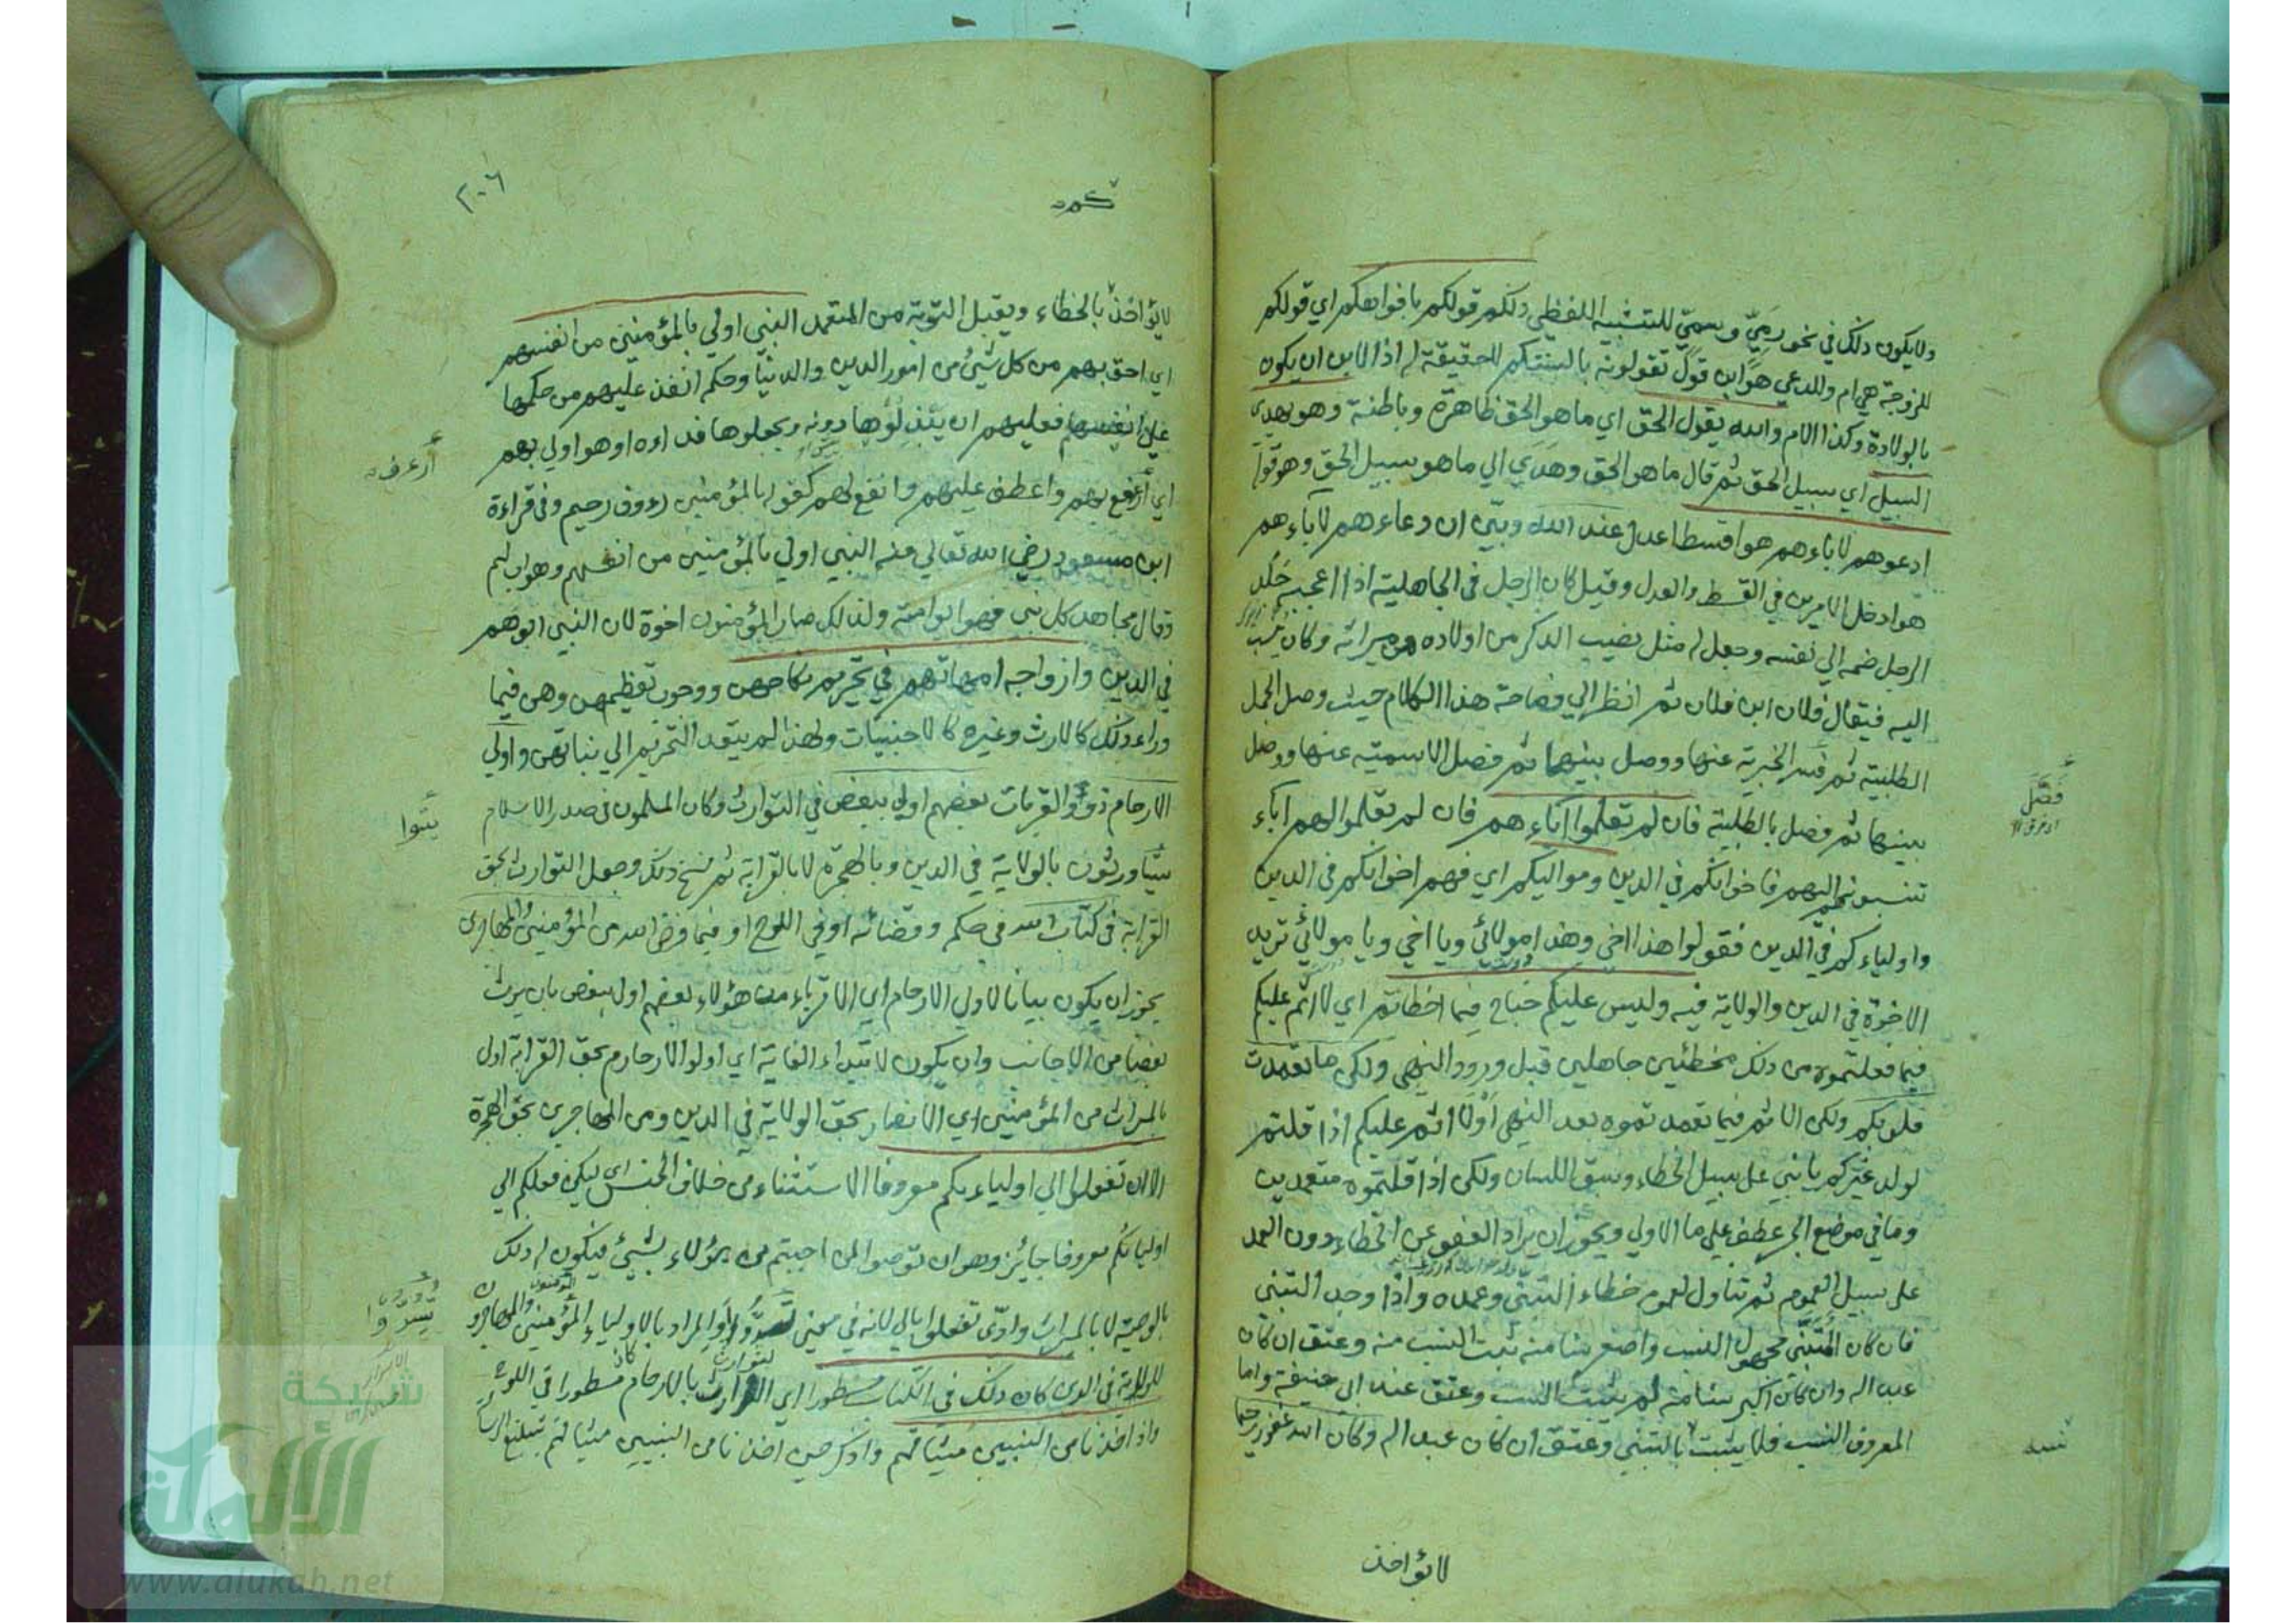 ولا يكون ذلك في نحو رمي وسمي للتشبيه اللفظي ذلكم قولكم بافواهكم اي قولكم
للزوجة هي ام وللدعي هو ابن قول تقولونه بالسنتكم لا حقيقة له اذ الابن ان يكون
بالولادة وكذا الام والله يقول الحق اي ما هو الحق ظاهره وباطنه وهو يهدي
السبيل اي سبيل الحق ثم قال ما هو الحق وهدي الي ما هو سبيل الحق وهو قوله
ادعوهم لاباءهم هو اقسط اعدل عند الله وبين ان دعاءهم لاباءهم
هو ادخل الامرين في القسط والعدل وقيل كان الرجل في الجاهلية اذا اعجبه جلد
الرجل ضمه الي نفسه وجعل له مثل نصيب الذكر من اولاده من ميراثه وكان ينسب
اليه فيقال فلان ابن فلان ثم انظر الي فصاحة هذا الكلام حيث وصل الجمل
الطلبية ثم فصل الخبرية عنها ووصل بينهما ثم فصل الاسمية عنها ووصل
بينها ثم فصل بالطلبية فان لم تعلموا اباءهم فان لم تعلموا لهم اباء
تنسبونهم اليهم فاخوانكم في الدين ومواليكم اي فهم اخوانكم في الدين
واولياءكم في الدين فقولوا هذا اخي وهذا مولائي ويا اخي ويا مولائي تريد
الاخوة في الدين والولاية فيه وليس عليكم جناح فيما اخطاتم اي لا اثم عليكم
فيما فعلتموه من ذلك مخطئين جاهلين قبل ورود النهي ولكن ما تعمدت
قلوبكم ولكن الاثم فيما تعمدتموه بعد النهي اولا اثم عليكم اذا قلتم
لولد غيركم يا بني علي سبيل الخطاء وسبق اللسان ولكن اذا قلتموه متعمدين
وما في موضع الجر عطف علي ما الاولي ويجوز ان يراد العفو عن الخطاء دون العمد
علي سبيل العموم ثم تناول لعموم خطاء التبني وعمده واذا وجد التبني
فان كان المتبني مجهول النسب واصغر سنا منه ثبت النسب منه وعتق ان كان
عبدا له وان كان اكبر سنا منه لم يثبت النسب وعتق عند ابي حنيفة واما
المعروف النسب فلا يثبت بالتبني وعتق ان كان عبدا له وكان الله غفورا رحيما
فصل
لا يؤاخذ
٢٠٦
لا يؤاخذ بالخطاء ويقبل التوبة من المتعمد النبي اولي بالمؤمنين من انفسهم
اي احق بهم من كل شيئ من امور الدين والدنيا وحكم انفذ عليهم من حكمها
علي انفسهم فعليهم ان يبذلوها دونه ويجعلوها فداءه او هو اولي بهم
اي ارءف بهم واعطف عليهم وانفع لهم كقوله بالمؤمنين رءوف رحيم وفي قراءة
ابن مسعود رضي الله تعالي عنه النبي اولي بالمؤمنين من انفسهم وهو اب لهم
وقال مجاهد كل نبي فهو ابو امته ولذلك صار المؤمنون اخوة لان النبي ابوهم
في الدين وازواجه امهاتهم في تحريم نكاحهن ووجوب تعظيمهن وهن فيما
وراء ذلك كالارث وغيره كالاجنبيات ولهذا لم يتعد التحريم الي بناتهن واولي
الارحام ذوو القربات بعضهم اولي ببعض في التوارث وكان المسلمون في صدر الاسلام
يتوارثون بالولاية في الدين وبالهجرة لا بالقرابة ثم نسخ ذلك وجعل التوارث بحق
القرابة في كتاب الله في حكم وقضائه او في اللوح او فيما فرض الله من المؤمنين والمهاجرين
يجوز ان يكون بيانا لاولي الارحام اي الاقرباء من هؤلاء بعضهم اولي ببعض بان يرث
بعضا من الاجانب وان يكون لابتداء الغاية اي اولوا الارحام بحق القرابة اولي
بالميراث من المؤمنين اي الانصار بحق الولاية في الدين ومن المهاجرين بحق الهجرة
الا ان تفعلوا الي اولياءكم معروفا الاستثناء من خلاف الجنس اي لكن فعلكم الي
اوليائكم معروفا جائز وهو ان توصوا لمن احببتم من هؤلاء بشيئ فيكون له ذلك
بالوصية لا بالميراث وعدي تفعلوا بالي لانه في معني تسدوا والمراد بالاولياء المؤمنين والمهاجرون
للولاية في الدين كان ذلك في الكتاب مسطورا اي التوارث بالارحام كان مسطورا في اللوح
واذ اخذنا من النبيين ميثاقهم واذكر حين اخذنا من النبيين ميثاقهم بتبليغ الرسالة
شبكة
الألوكة
www.alukah.net